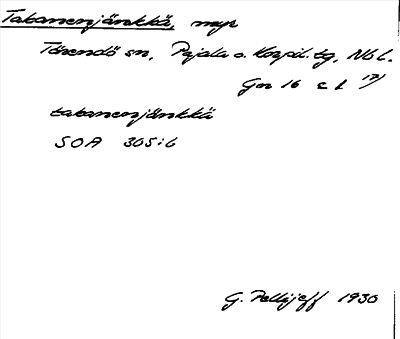 Takanenjänkkä, myr
Tärendö sn, Pajala o. Korpil. tg, Nb l.
Gn 16 c 1 17)
takanenjänkkä
SOA 305:6
G. Pellijeff 1930